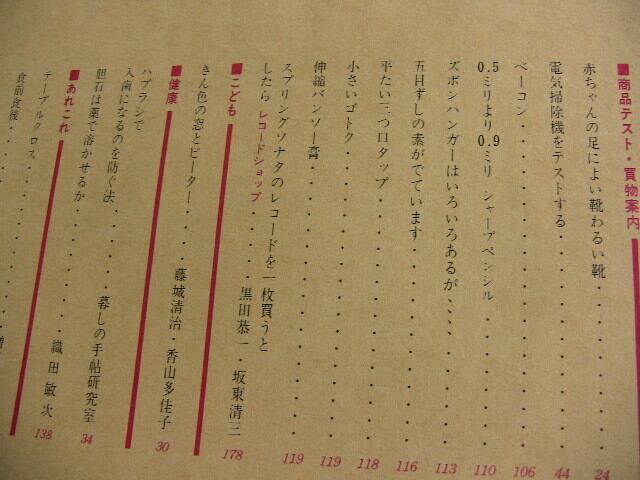 ■商品テスト・買物案内
赤ちゃんの足によい靴わるい靴・・・・・・・・24
電気掃除機をテストする・・・・・・・・・・44
ベーコン・・・・・・・・・・・・・・106
0.5ミリより0.9ミリ シャープペンシル・・・・・・110
ズボンハンガーはいろいろあるが、、、、・・・・・・113
五目ずしの素がでています・・・・・・・・・116
平たい三つ口タップ・・・・・・・・・・118
小さいゴトク・・・・・・・・・・・・119
伸縮バンソー膏・・・・・・・・・・・119
スプリングソナタのレコードを一枚買うと
したら レコードショップ・・・・・黒田恭一・坂東清三 178
■こども
きん色の窓とピーター・・・・藤城清治・香山多佳子 30
■健康
ハブラシで
入歯になるのを防ぐ法・・・・・・暮しの手帖研究室 34
胆石は薬で溶かせるか・・・・・・・・織田敏次 138
■あれこれ
テーブルクロス・・・・・・・・
食前食後・・・・・・・・